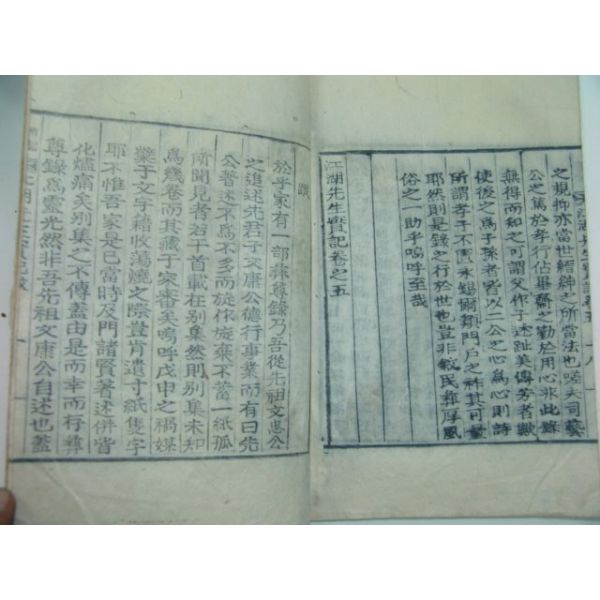 之規抑亦當世縉紳之所當法也嗟夫司藝
公之篤於孝行佔畢齋之勤於用心非此錄
無得而知之可謂父作子述趾美傳芳者歟
使後之爲子孫者皆以二公之心爲心則詩
所謂孝子不匱永錫爾類門戶之祚其可量
耶然則是錄之行於世也豈非敎民彝厚風
俗之一助乎嗚呼至哉
江湖先生實記卷之五
跋
於乎家有一部彝尊錄乃吾從先祖文忠公
之追述先君子文康公德行事業而有曰先
公著述不爲不多而旋作旋棄不蓄一紙孤
所聞見者若干首載在別集然則別集未知
爲幾卷而其藏于家審矣嗚呼戊申之禍媒
櫱于文字籍收蕩燒之際豈肯遺寸紙隻字
耶不惟吾家是已當時及門諸賢著述倂皆
化燼痛矣別集之不傳蓋由是而幸而行彝
尊錄爲靈光然非吾先祖文康公自述也蓋